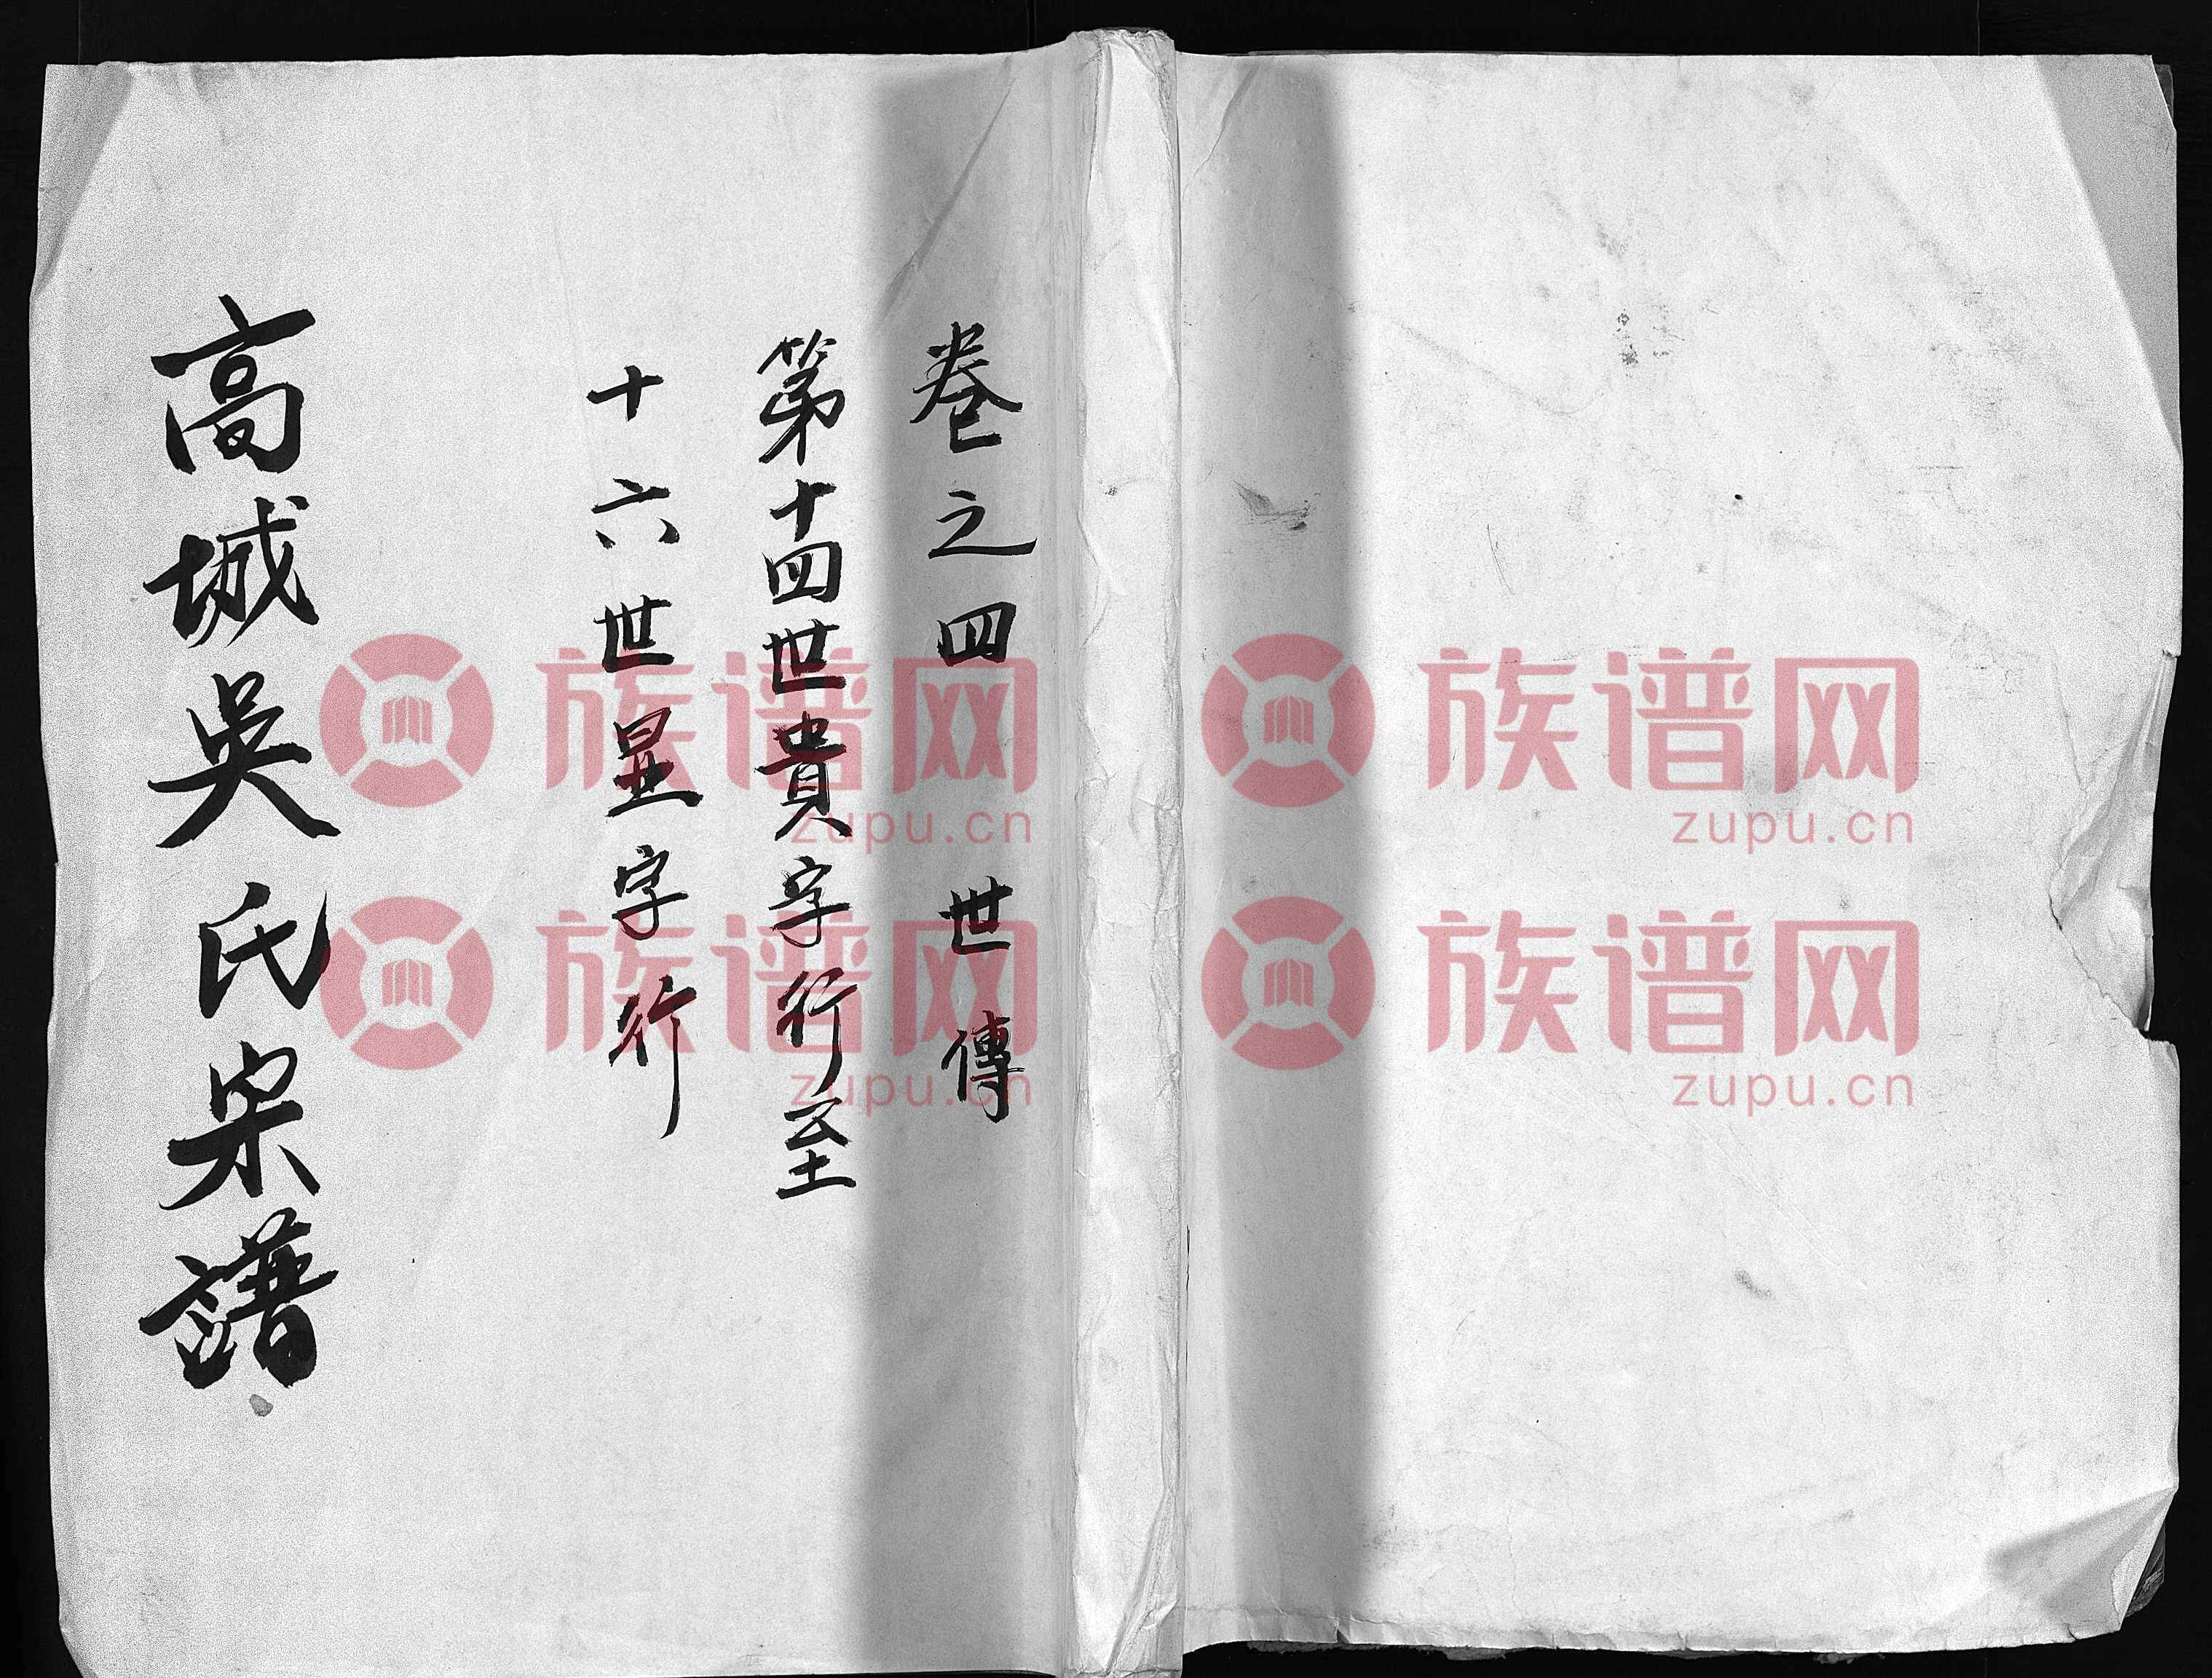 卷之四 世傳
第十四世貴字行至
十六世显字行
高城吳氏宗譜
族谱网 族谱网
zupu.cn zupu.cn
族谱网 族谱网
zupu.cn zupu.cn